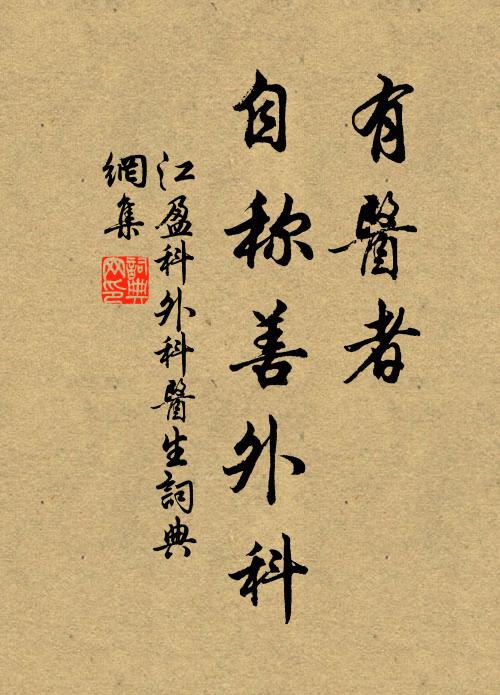 有醫者
自称善外科
江盈科外科醫生詞典
網集
詞典
网印